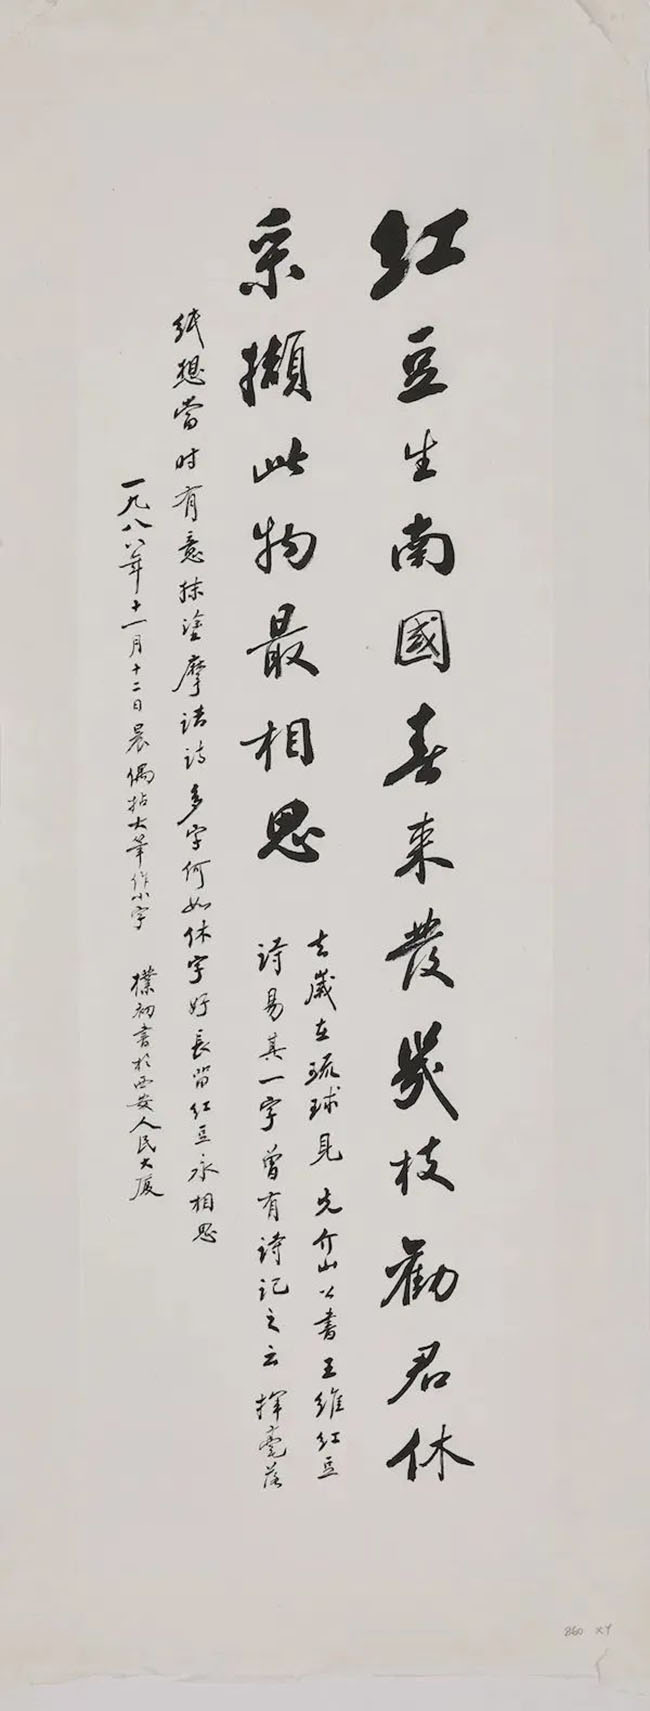 紅豆生南國春来發幾枝勸君休
采擷此物最相思
去歲在琉球見 先介山公書王維红豆
詩易其一字曾有詩记之云 揮毫落
纸想當时有意抹塗摩诘詩多字何如休字好長留红豆永相思
一九八八年十一月十二日晨偶拈大筆作小字 樸初書於西安人民大厦
860 x4